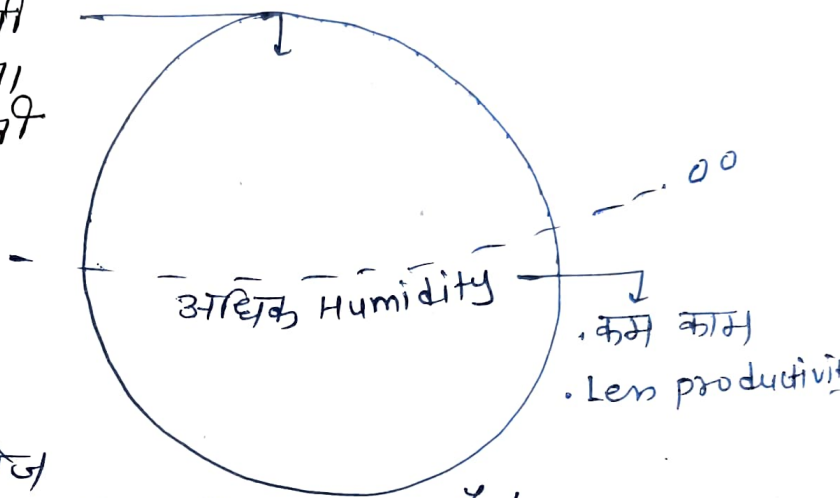 00
अधिक Humidity
. कम काम
. Less productivi